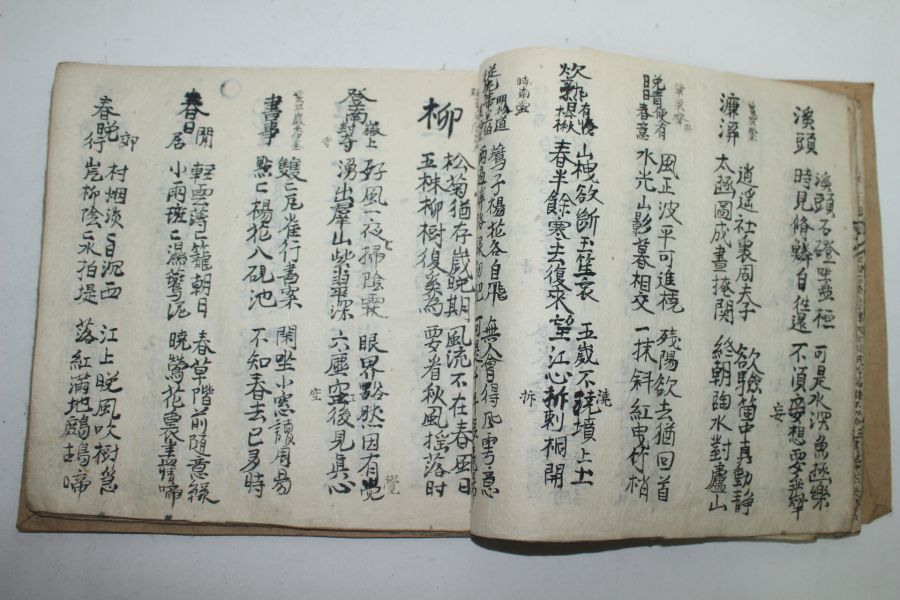 溪頭
溪頭石磴坐盤桓
時見脩鱗自往還
可是水深魚極樂
不須妄想要垂竿
濂溪
逍遥社裏周夫子
太極圖成晝掩關
欲驗箇中真動靜
終朝臨水對廬山
晚晴便有春意
風正波平可進橈
水光山影暮相交
殘陽欲去猶回首
一抹斜紅曳竹梢
山𣑱欲斷玉笙哀
春半餘寒去復來
五歲不澆墳上土
望江心折刺桐開
時南雲
明道
鶯子楊花各自飛
無人會得風雩意
柳
松菊猶存歲晚期
五株柳樹復奚為
風流不在春風日
要看秋風搖落時
登南寺
巖上
好風一夜掃陰霖
湧出羣山紫翠深
眼界豁然因有覺
六塵空後見真心
空
覺
書事
雙雙瓦雀行書案
點點楊花入硯池
閑坐小窓讀周易
不知春去已多時
春日閒居
輕雲薄薄籠朝日
小雨班班濕鶯泥
春草階前隨意綠
曉鶯花裏盡情啼
春晚郊行
村烟淡淡日沉西
岸柳陰陰水拍堤
江上晚風吹樹急
落紅滿地鷓鴣啼